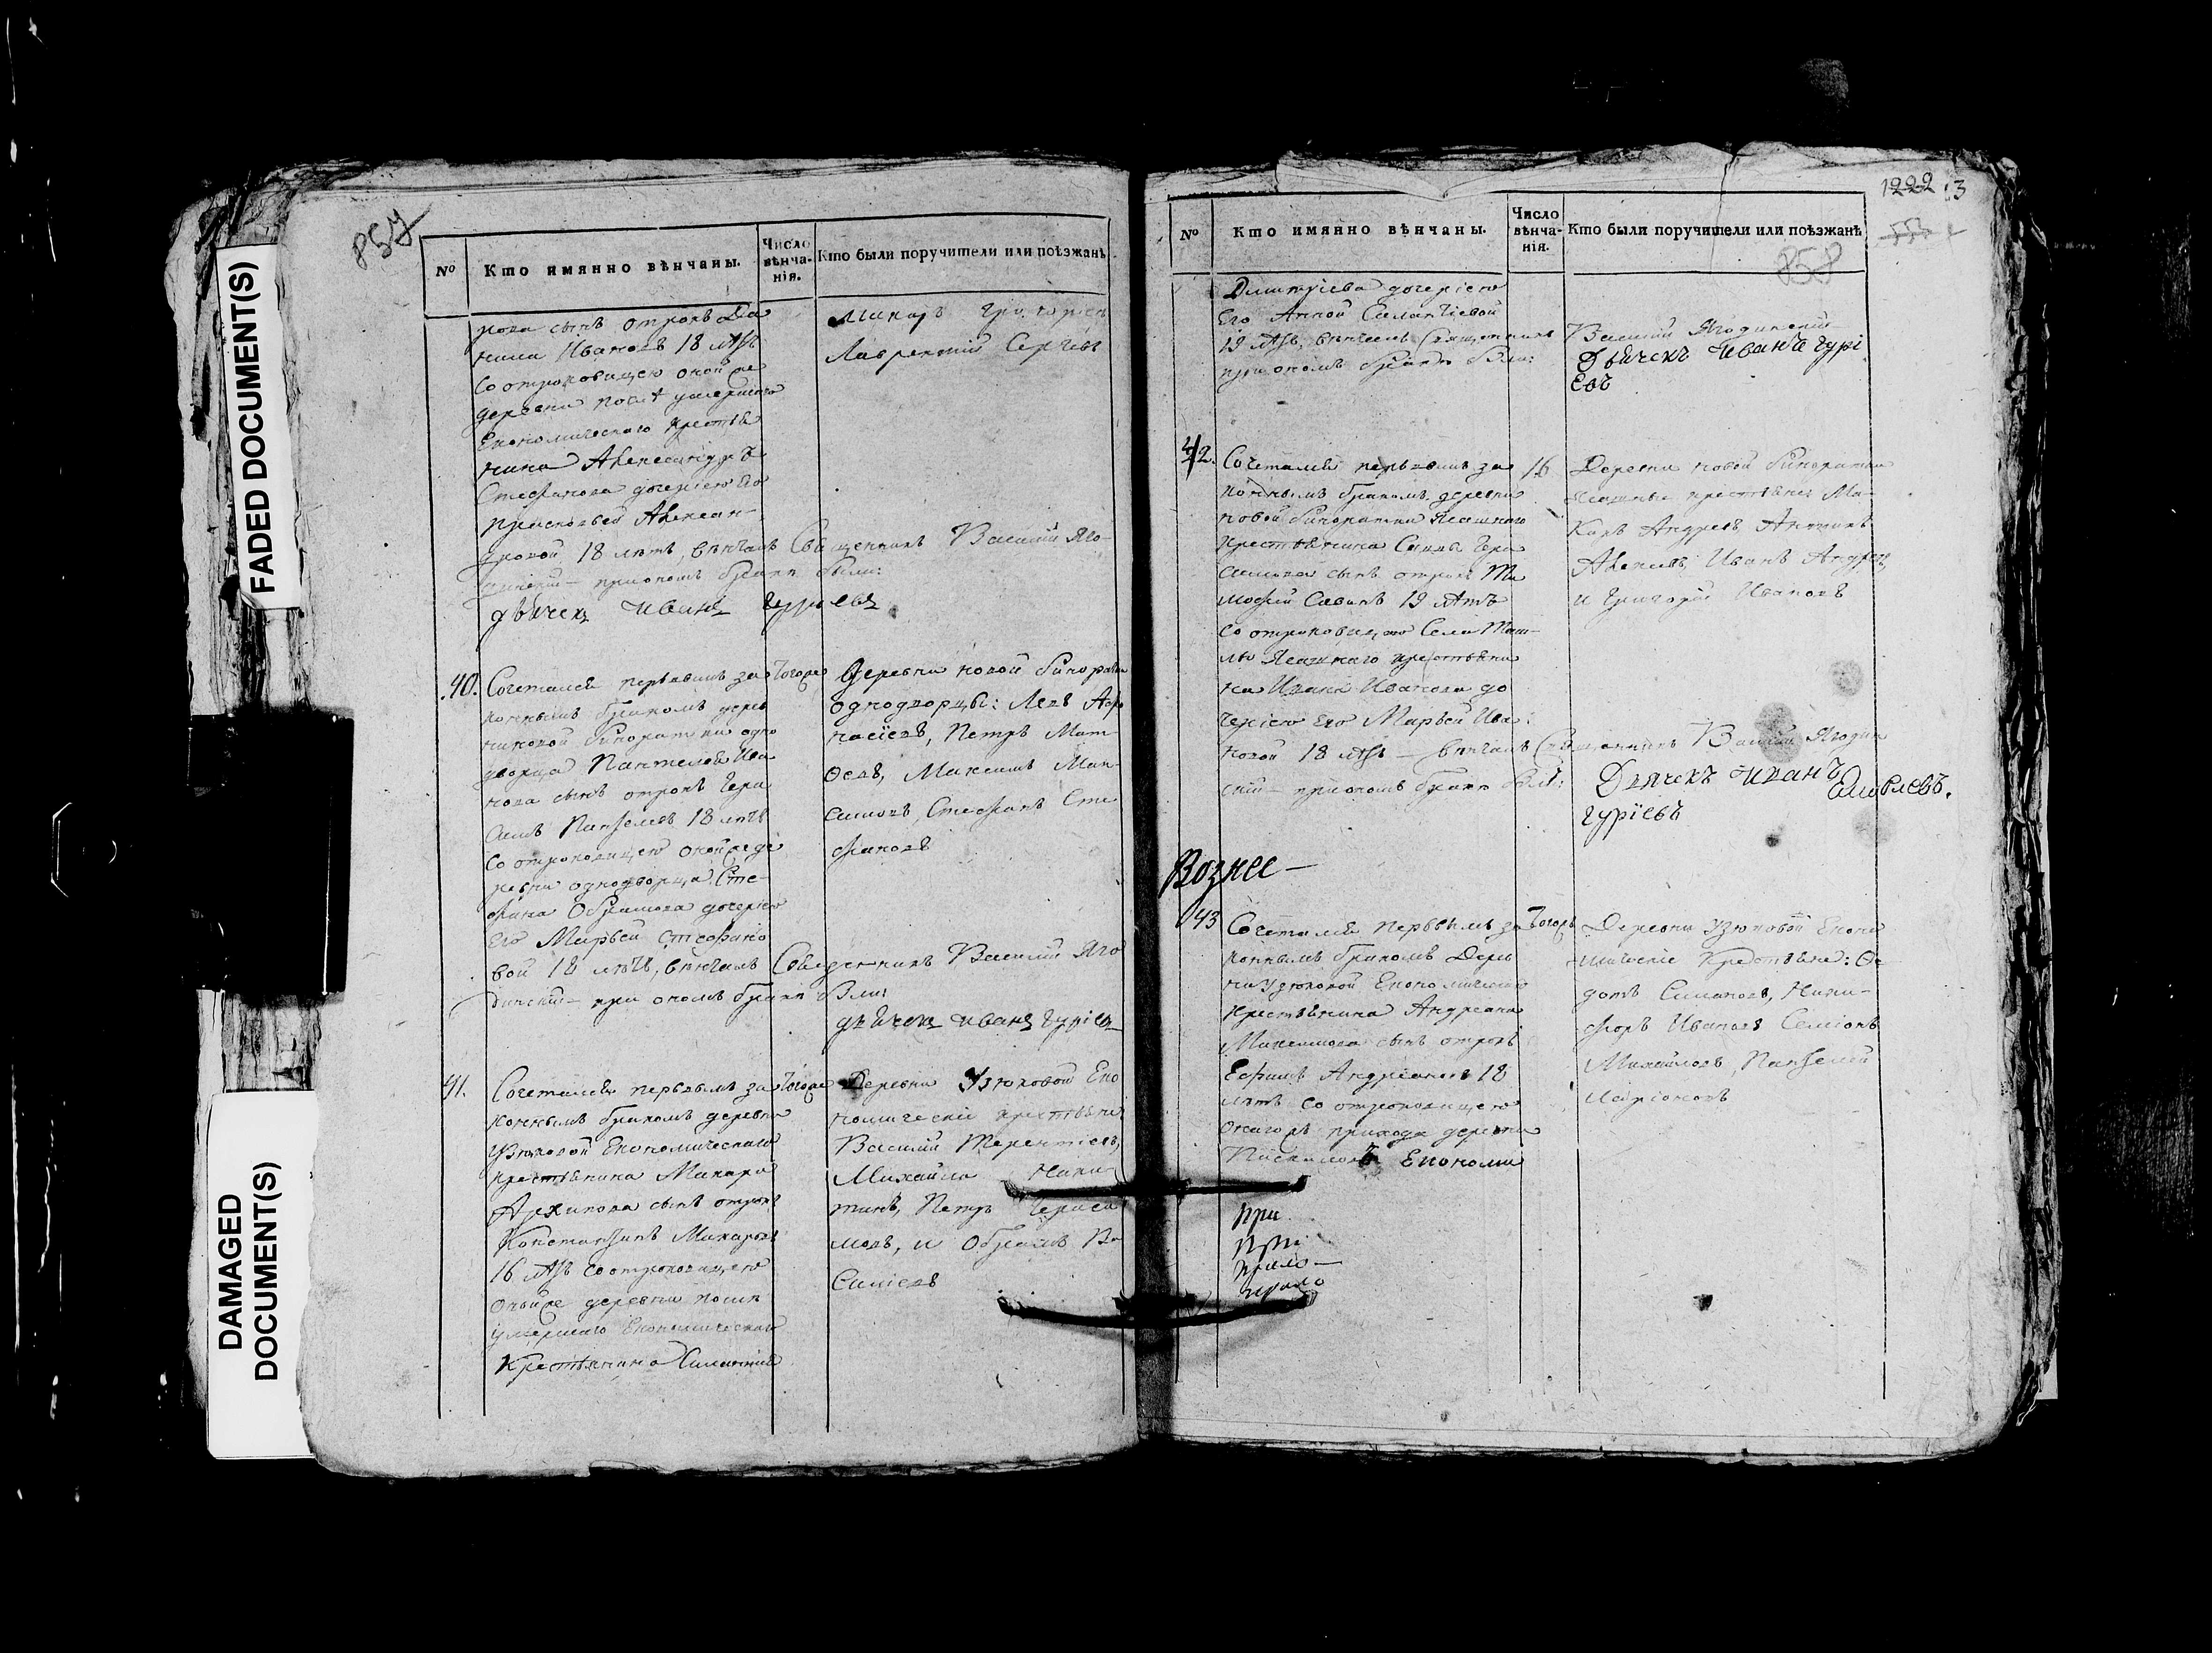 FADED DOCUMENT(S)
DAMAGED
DOCUMENT(S)
857
№
Кто имянно вѣнчаны.
Число
вѣнча-
нія.
Кто были поручители или поѣзжанѣ
рова сынъ отрокъ Да
нила Ивановъ 18 лѣтъ
Со отроковицею оной же
деревни
Економическаго крестья
нина Александра
Стефанова дочерью Его
Прасковьей Алексан-
дровой 18 лѣтъ, вѣнчалъ Священникъ Василий Яго-
динский – при ономъ бракѣ были:
дьячекъ иванъ гурьевъ
Макаръ Григорьевъ
Лаврентий Сергѣевъ
40.
Сочетался первымъ за
коннымъ бракомъ дерев
ни новой Бинарадки одно
дворца Пантелея Ива
нова сынъ отрокъ Гера
симъ Пантелеевъ 18 лѣтъ
Со отроковицею оной же де
ревни однодворца Сте-
фана Обрамова дочерью
Его Марьей Стефано
вой 18 лѣтъ, вѣнчалъ Священникъ Василий Яго
динский – при ономъ бракѣ были
дьячекъ иванъ гурьевъ
Тогоже
Деревни новой Бинарадки
однодворцы: Левъ Афо
насіевъ, Петръ Мат
ѳеевъ, Максимъ Мак-
симовъ, Стефанъ Сте
фановъ
41.
Сочетался первымъ за
коннымъ бракомъ деревни
Узюковой Економическаго
крестьянина Макара
Архипова сынъ отрокъ
Константинъ Макаровъ
16 лѣтъ Со отроковицею
оной же деревни
умершаго Економическаго
Крестьянина Силантия
Тогоже
Деревни Узюковой Еко
номическіе крестьяне
Василий Терентіевъ,
Михайла Ники-
тинъ, Петръ Гераси
мовъ, и Обрамъ Ва
силіевъ
1222
3
858
№
Кто имянно вѣнчаны.
Число
вѣнча-
нія.
Кто были поручители или поѣзжанѣ
Дмитріева дочерію
Его Анной Силантіевой
19 лѣтъ, вѣнчалъ Священникъ Василий Ягодинский
при ономъ бракѣ были:
Дьячекъ иванъ гурі
евъ
42.
Сочетался первымъ за
коннымъ бракомъ деревни
новой Бинарадки Ясашнаго
Крестьянина Савы Гера
симова сынъ отрокъ Ти
мофей Савинъ 19 лѣтъ
Со отроковицею Села Таш-
лы Ясашнаго крестьяни
на Ивана Иванова до
черію Его Марьей Ива
новой 18 лѣтъ – вѣнчалъ Священникъ Василий Ягодин
ский – при ономъ бракѣ были:
16
Деревни новой Бинарадки
Ясашные крестьяне Ма-
каръ Андреевъ
Алексѣевъ, Иванъ Андреевъ,
и Григорий Ивановъ
Дьячекъ иванъ
гурїевъ
Вознес –
43
Сочетался первымъ за
коннымъ бракомъ Дерев
ни Узюковой Економическаго
крестьянина Андреана
Максимова сынъ отрокъ
Ефимъ Андреановъ 18
лѣтъ со отроковицею
онагожъ прихода деревни
Пискалов Економи
Тогожъ
Деревни Узюковой Еконо
мическіе Крестьяне: Ѳе
дотъ Симановъ, Ники-
форъ Ивановъ Семіонъ
Михайловъ, Пантелей
Ларіоновъ
при
при
прило –
прило